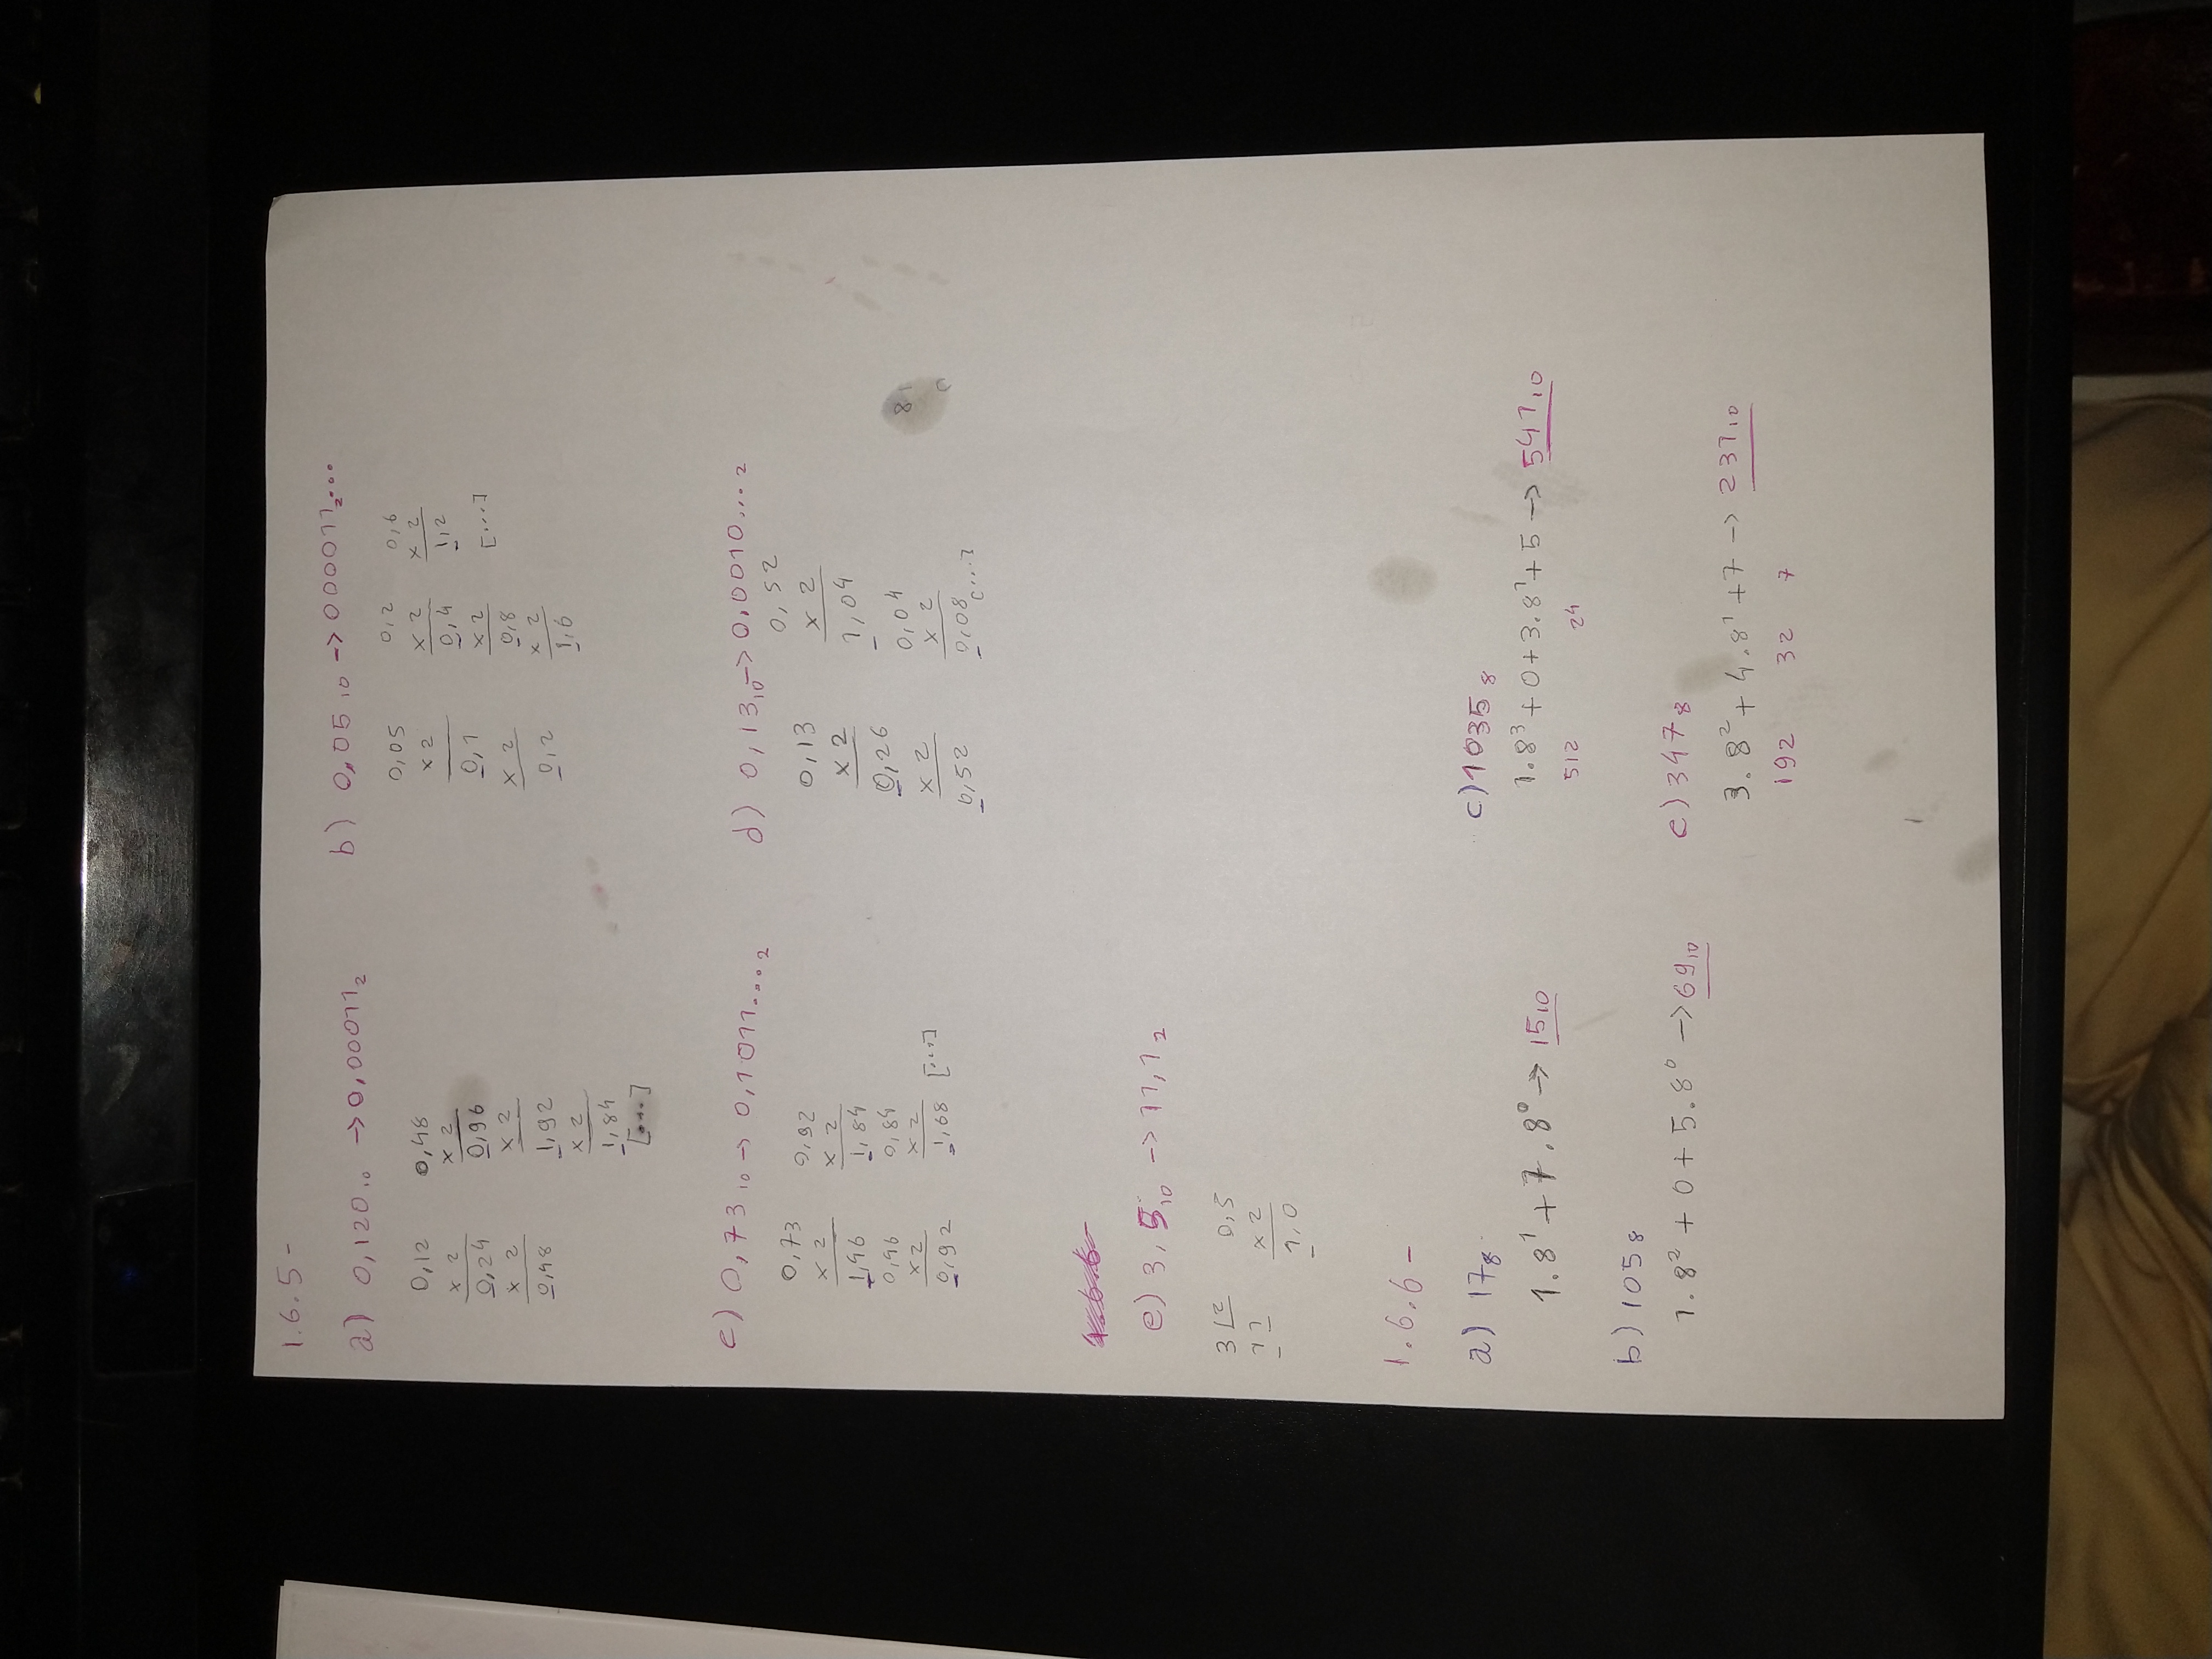 1.6.5-
a) 0,120₁₀ → 0,00011₂
0,12
x 2
0,24
x 2
0,48
0,48
x 2
0,96
x 2
1,92
x 2
1,84
[...]
b) 0,05₁₀ → 000011₂...
0,05
x 2
0,1
x 2
0,2
0,2
x 2
0,4
x 2
0,8
x 2
1,6
0,6
x 2
1,2
[...]
c) 0,73₁₀ → 0,1011....₂
0,73
x 2
1,46
0,46
x 2
0,92
0,92
x 2
1,84
0,84
x 2
1,68 [...]
d) 0,13₁₀ → 0,0010...₂
0,13
x 2
0,26
x 2
0,52
0,52
x 2
1,04
0,04
x 2
0,08 [...]
e) 3,5₁₀ → 11,1₂
3 | 2
1 1
0,5
x 2
1,0
1.6.6-
a) 17₈
1.8¹ + 7.8⁰ → 15₁₀
b) 105₈
1.8² + 0 + 5.8⁰ → 69₁₀
c) 1035₈
1.8³ + 0 + 3.8¹ + 5 → 541₁₀
512 24
e) 347₈
3.8² + 4.8¹ + 7 → 231₁₀
192 32 7